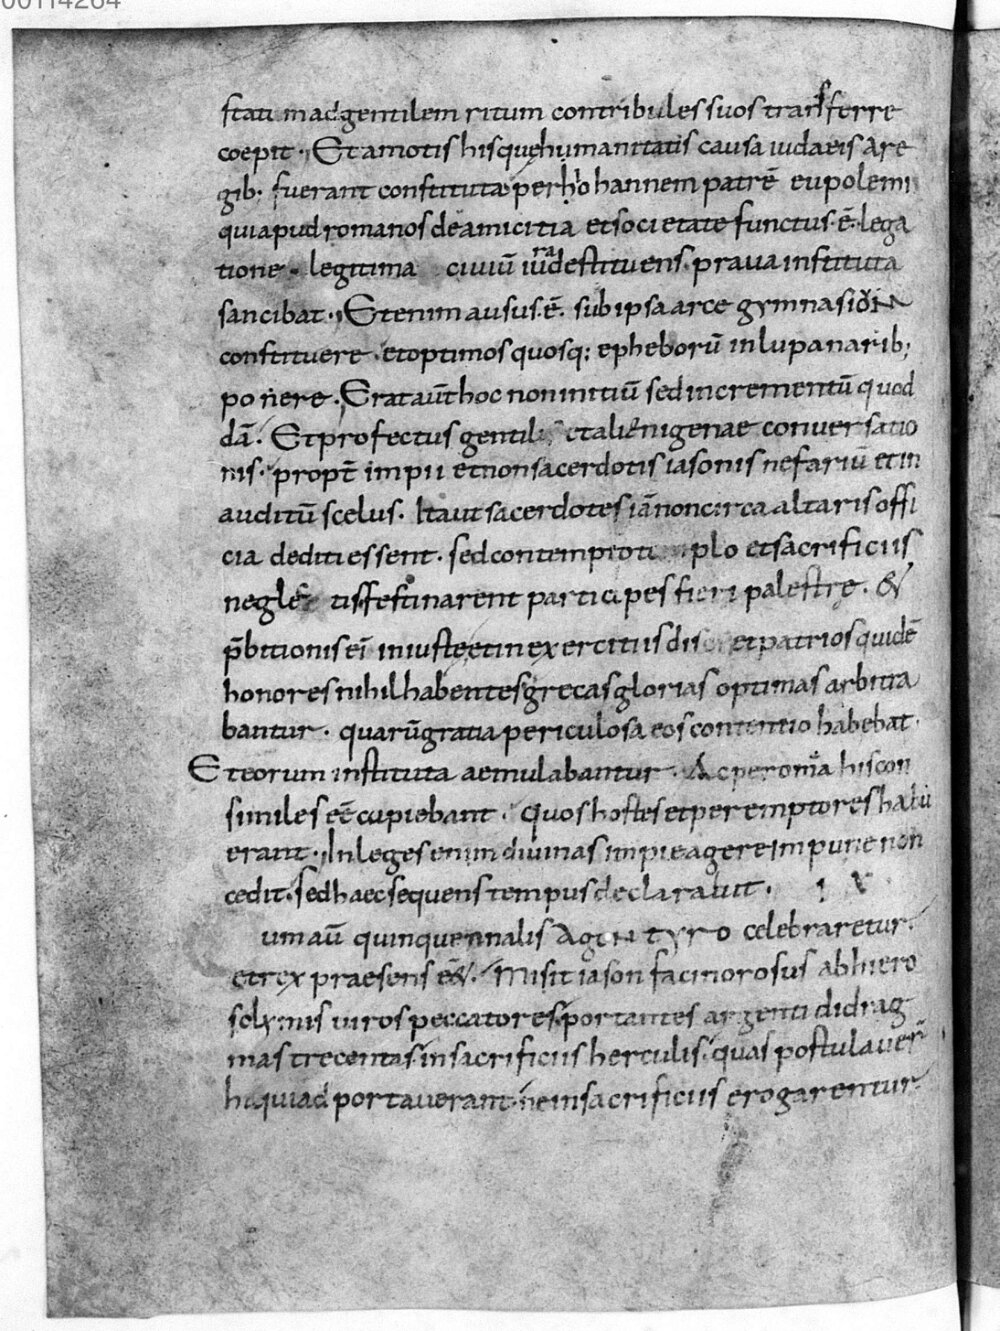 00114264
statim ad gentilem ritum contribules suos transferre
coepit · Et amotis his que humanitatis causa iudaeis a re
gib; fuerant constituta per hiohannem patrē eupolemi
qui apud romanos de amicitia et societate functus ē lega
tione · legitima civiū iura destituens prava instituta
sancibat · Etenim ausus ē sub ipsa arce gymnasion
constituere · et optimos quosq; epheborū in lupanarib;
ponere · Erat aūt hoc non initiū sed incrementū quod
dā · Et profectus gentilis et alienigenae conversatio
nis · propt̄ impii et non sacerdotis iasonis nefariū et in
auditū scelus · Ita ut sacerdotes iā non circa altaris offi
cia dediti essent · sed contempto templo et sacrificiis
neglectis festinarent participes fieri palestre · &
p̄bitionis ei iniuste et in exercitiis disci et patrios quidē
honores nihil habentes grecas glorias optimas arbitra
bantur · quarū gratia periculosa eos contentio habebat ·
Et eorum instituta aemulabantur · Ac per omīa his con
similes eē cupiebant · Quos hostes et peremptores habu
erant · In leges enim divinas impie agere impune non
cedit · sed haec sequens tempus declaravit ·
um aū quinquennalis Agon tyro celebraretur ·
et rex praesens eē& · Misit iason facinorosus ab hiero
solymis viros peccatores portantes argenti didrag
mas trecentas in sacrificiis herculis · quas postulaver̄
hi qui adportaverant · ne in sacrificiis erogarentur ·